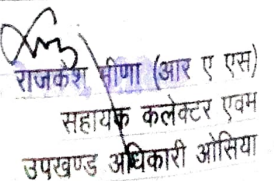 राजकेश मीणा (आर ए एस)
सहायक कलेक्टर एवम
उपखण्ड अधिकारी ओसिया